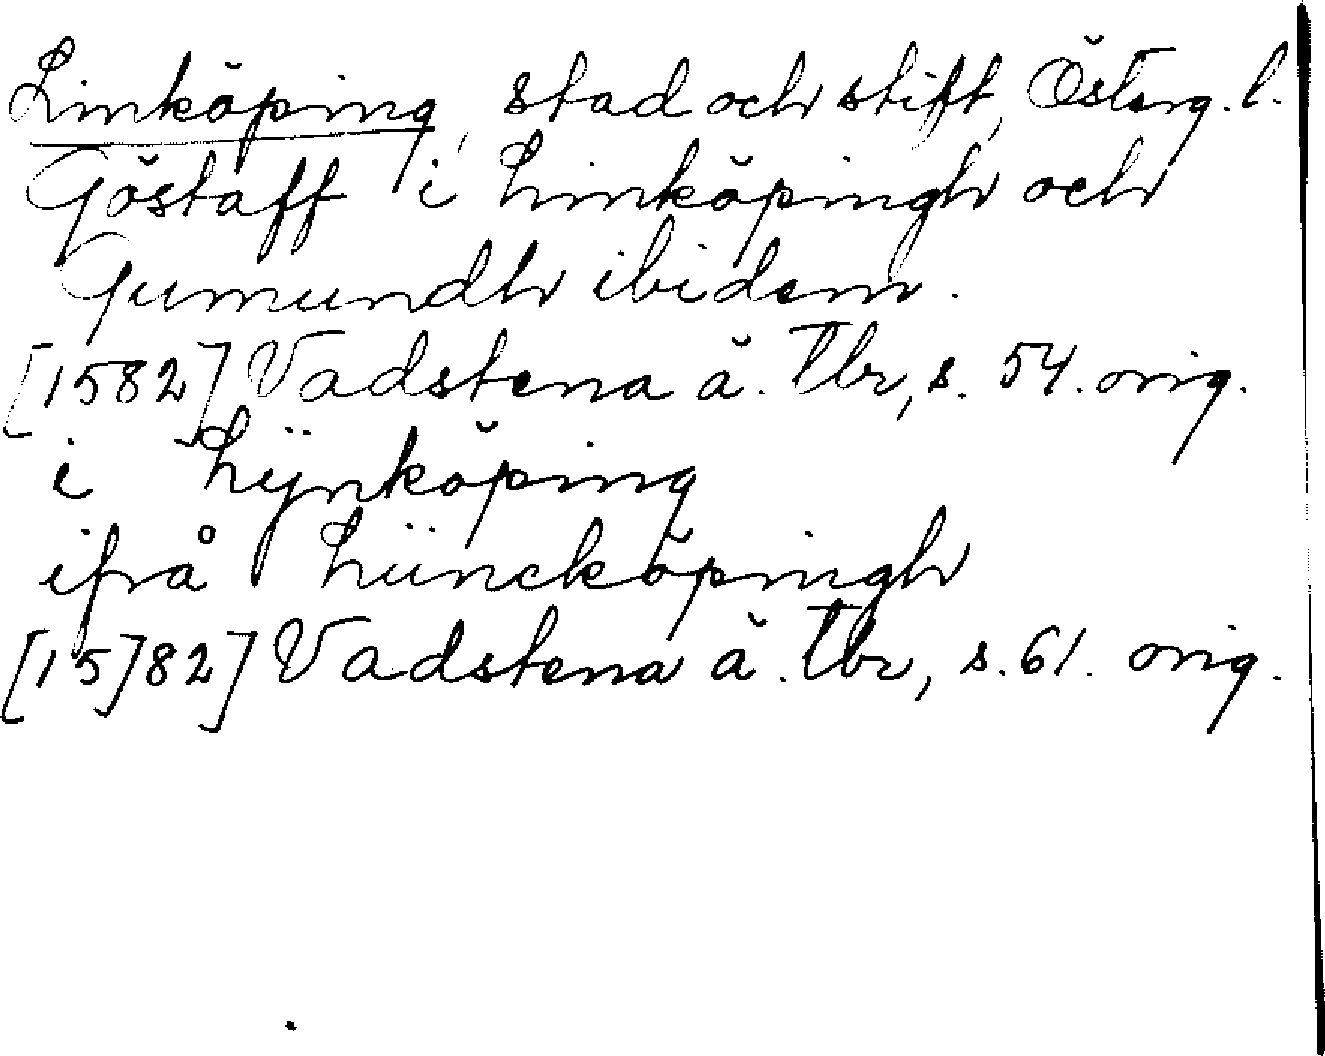 Linköping, stad och stift, Österg. l.
Göstaff i Linköpingh och
Gumundh ibidem.
[1582] Vadstena ä. Tbr, s. 54. orig.
i Lÿnköping
ifrå Liincköpingh
[15]82] Vadstena ä. tbr, s. 61. orig.